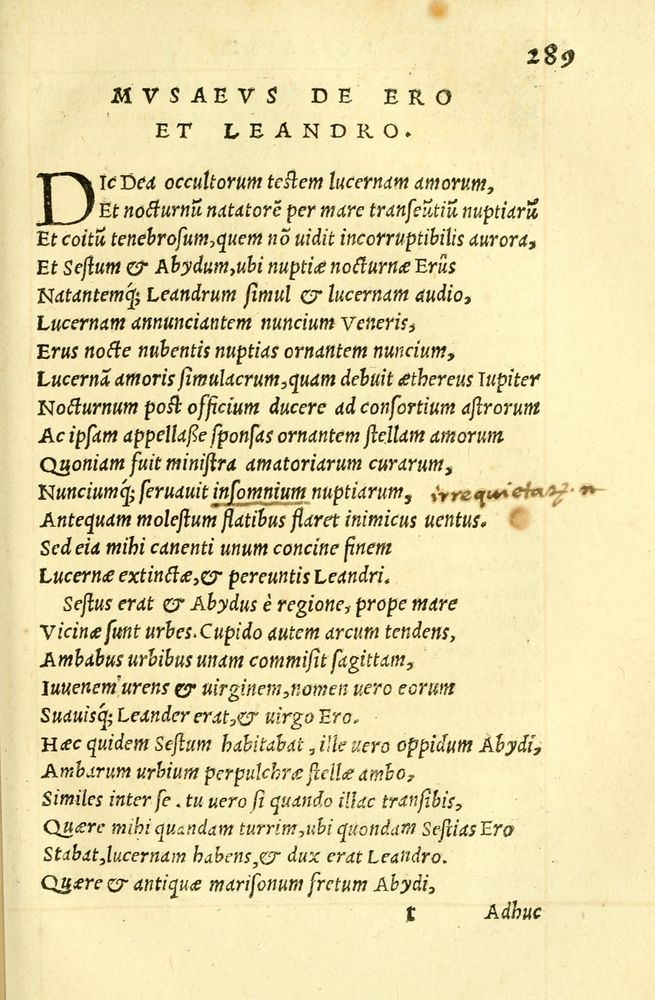 289
MVSAEVS DE ERO
ET LEANDRO.
DIc Dea occultorum testem lucernam amorum,
Et nocturnũ natatorẽ per mare transeũtiũ nuptiarũ
Et coitũ tenebrosum, quem nõ uidit incorruptibilis aurora,
Et Sestum & Abydum, ubi nuptiæ nocturnæ Erũs
Natantemq́; Leandrum simul & lucernam audio,
Lucernam annunciantem nuncium Veneris,
Erus nocte nubentis nuptias ornantem nuncium,
Lucernã amoris simulacrum, quam debuit æthereus Iupiter
Nocturnum post officium ducere ad consortium astrorum
Ac ipsam appellaße sponsas ornantem stellam amorum
Quoniam fuit ministra amatoriarum curarum,
Nunciumq́; seruauit insomnium nuptiarum, irrequietaꝝ
Antequam molestum flatibus flaret inimicus uentus.
Sed eia mihi canenti unum concine finem
Lucernæ extinctæ, & pereuntis Leandri.
Sestus erat & Abydus è regione, prope mare
Vicinæ sunt urbes. Cupido autem arcum tendens,
Ambabus urbibus unam commisit sagittam,
Iuuenem urens & uirginem, nomen uero eorum
Suauisq́; Leander erat, & uirgo Ero.
Hæc quidem Sestum habitabat, ille uero oppidum Abydi,
Ambarum urbium perpulchræ stellæ ambo,
Similes inter se. tu uero si quando illac transibis,
Quære mihi quandam turrim, ubi quondam Sestias Ero
Stabat, lucernam habens, & dux erat Leandro.
Quære & antiquæ marisonum fretum Abydi,
t Adhuc